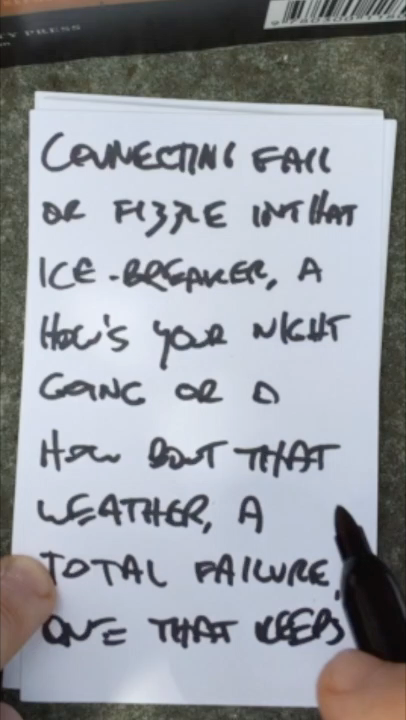 TY PRESS
CONNECTING FAIL
OR FIZZLE IN THAT
ICE-BREAKER, A
HOW'S YOUR NIGHT
GOING OR A
HOW BOUT THAT
WEATHER, A
TOTAL FAILURE,
ONE THAT KEEPS